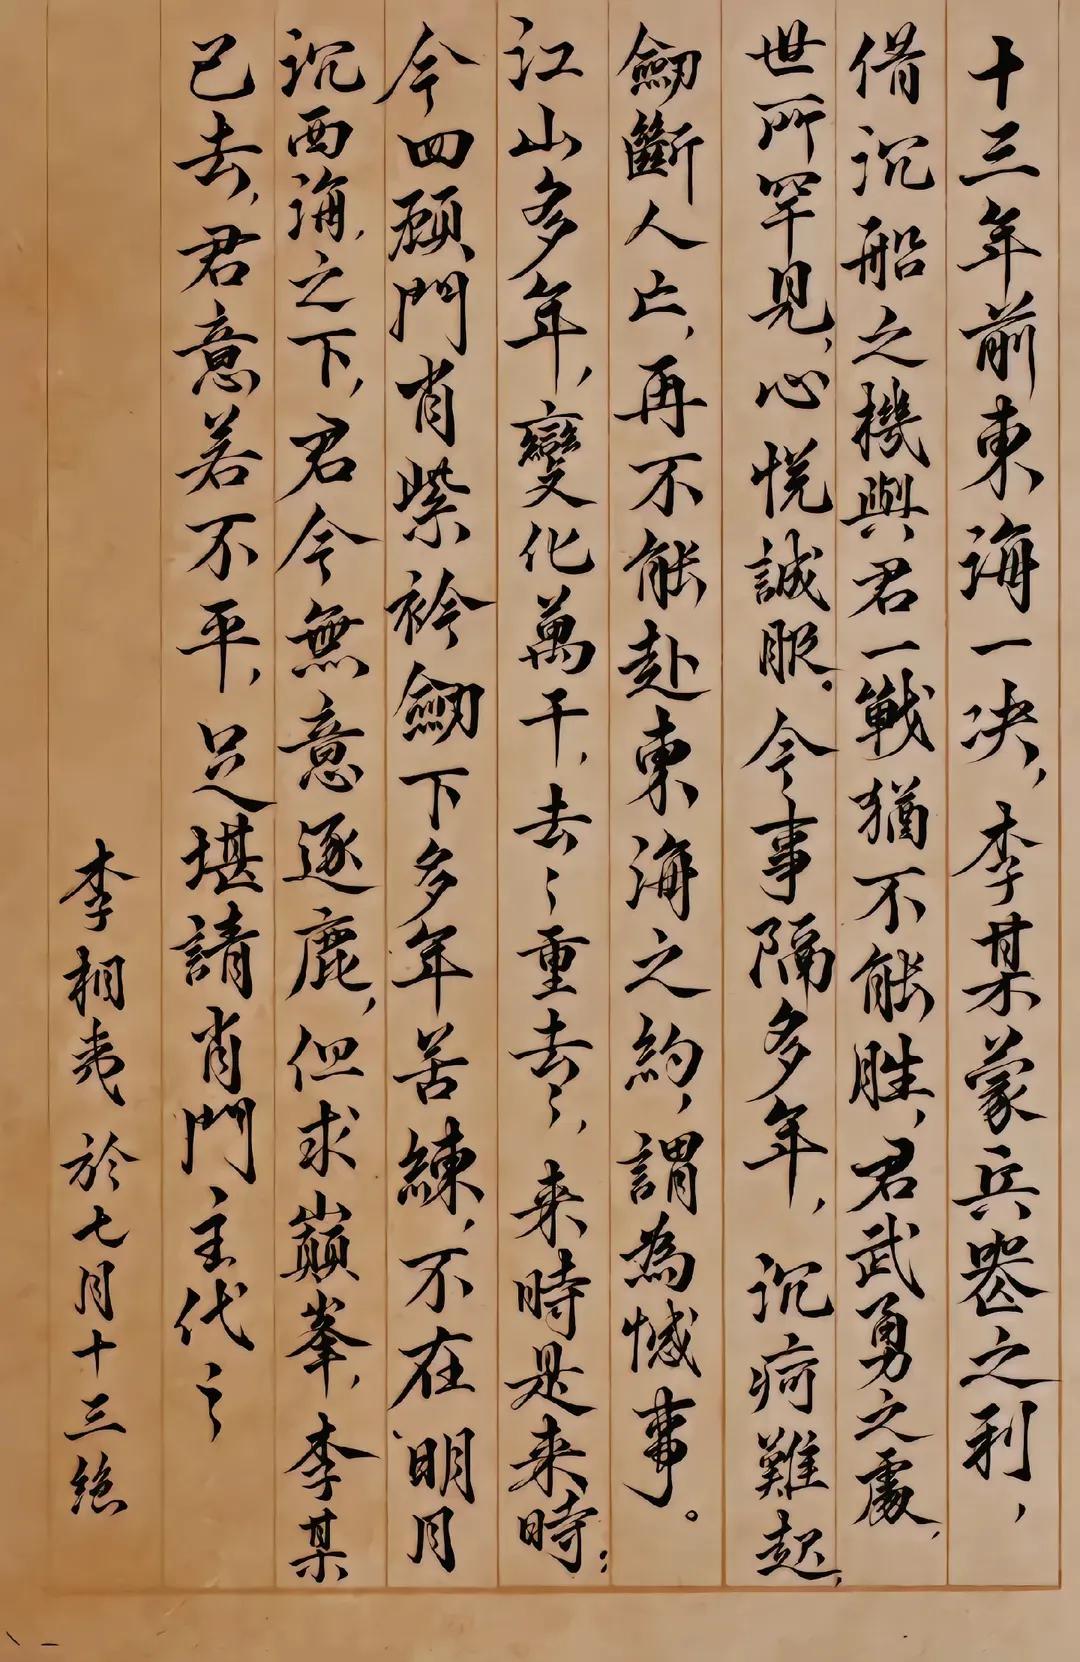 十三年前東海一决，李某蒙兵器之利，
借沉船之機與君一戰猶不能胜，君武勇之處，
世所罕見，心悦誠服。今事隔多年，沉疴難起，
劒斷人亡，再不能赴東海之約，謂為憾事。
江山多年，變化萬千，去去重去去，来時是来時；
今四顧門肖紫衿劒下多年苦練，不在明月
沉西海之下，君今無意逐鹿，但求巔峯，李某
已去，君意若不平，足堪請肖門主代之
李相夷 於七月十三絶